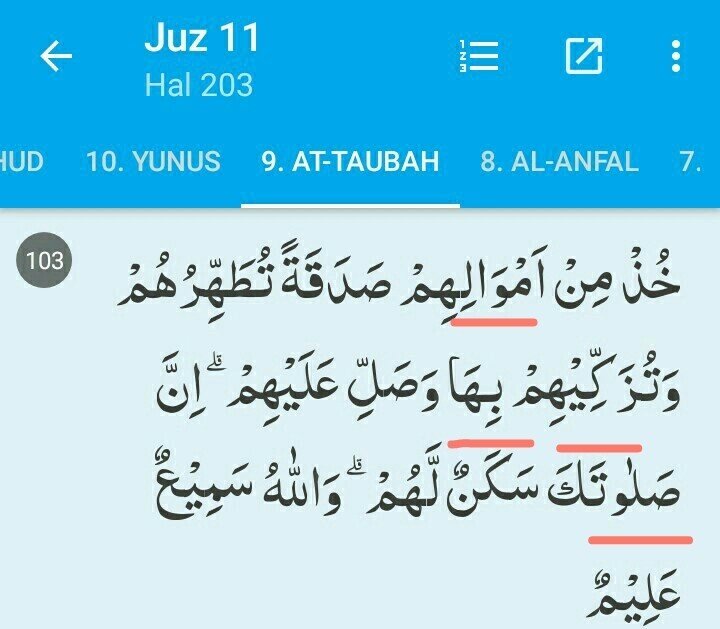 Juz 11
Hal 203
HUD 10. YUNUS 9. AT-TAUBAH 8. AL-ANFAL 7.
103
خُذْ مِنْ اَمْوَالِهِمْ صَدَقَةً تُطَهِّرُهُمْ
وَتُزَكِّيْهِمْ بِهَا وَصَلِّ عَلَيْهِمْۗ اِنَّ
صَلٰوتَكَ سَكَنٌ لَّهُمْۗ وَاللّٰهُ سَمِيْعٌ
عَلِيْمٌ